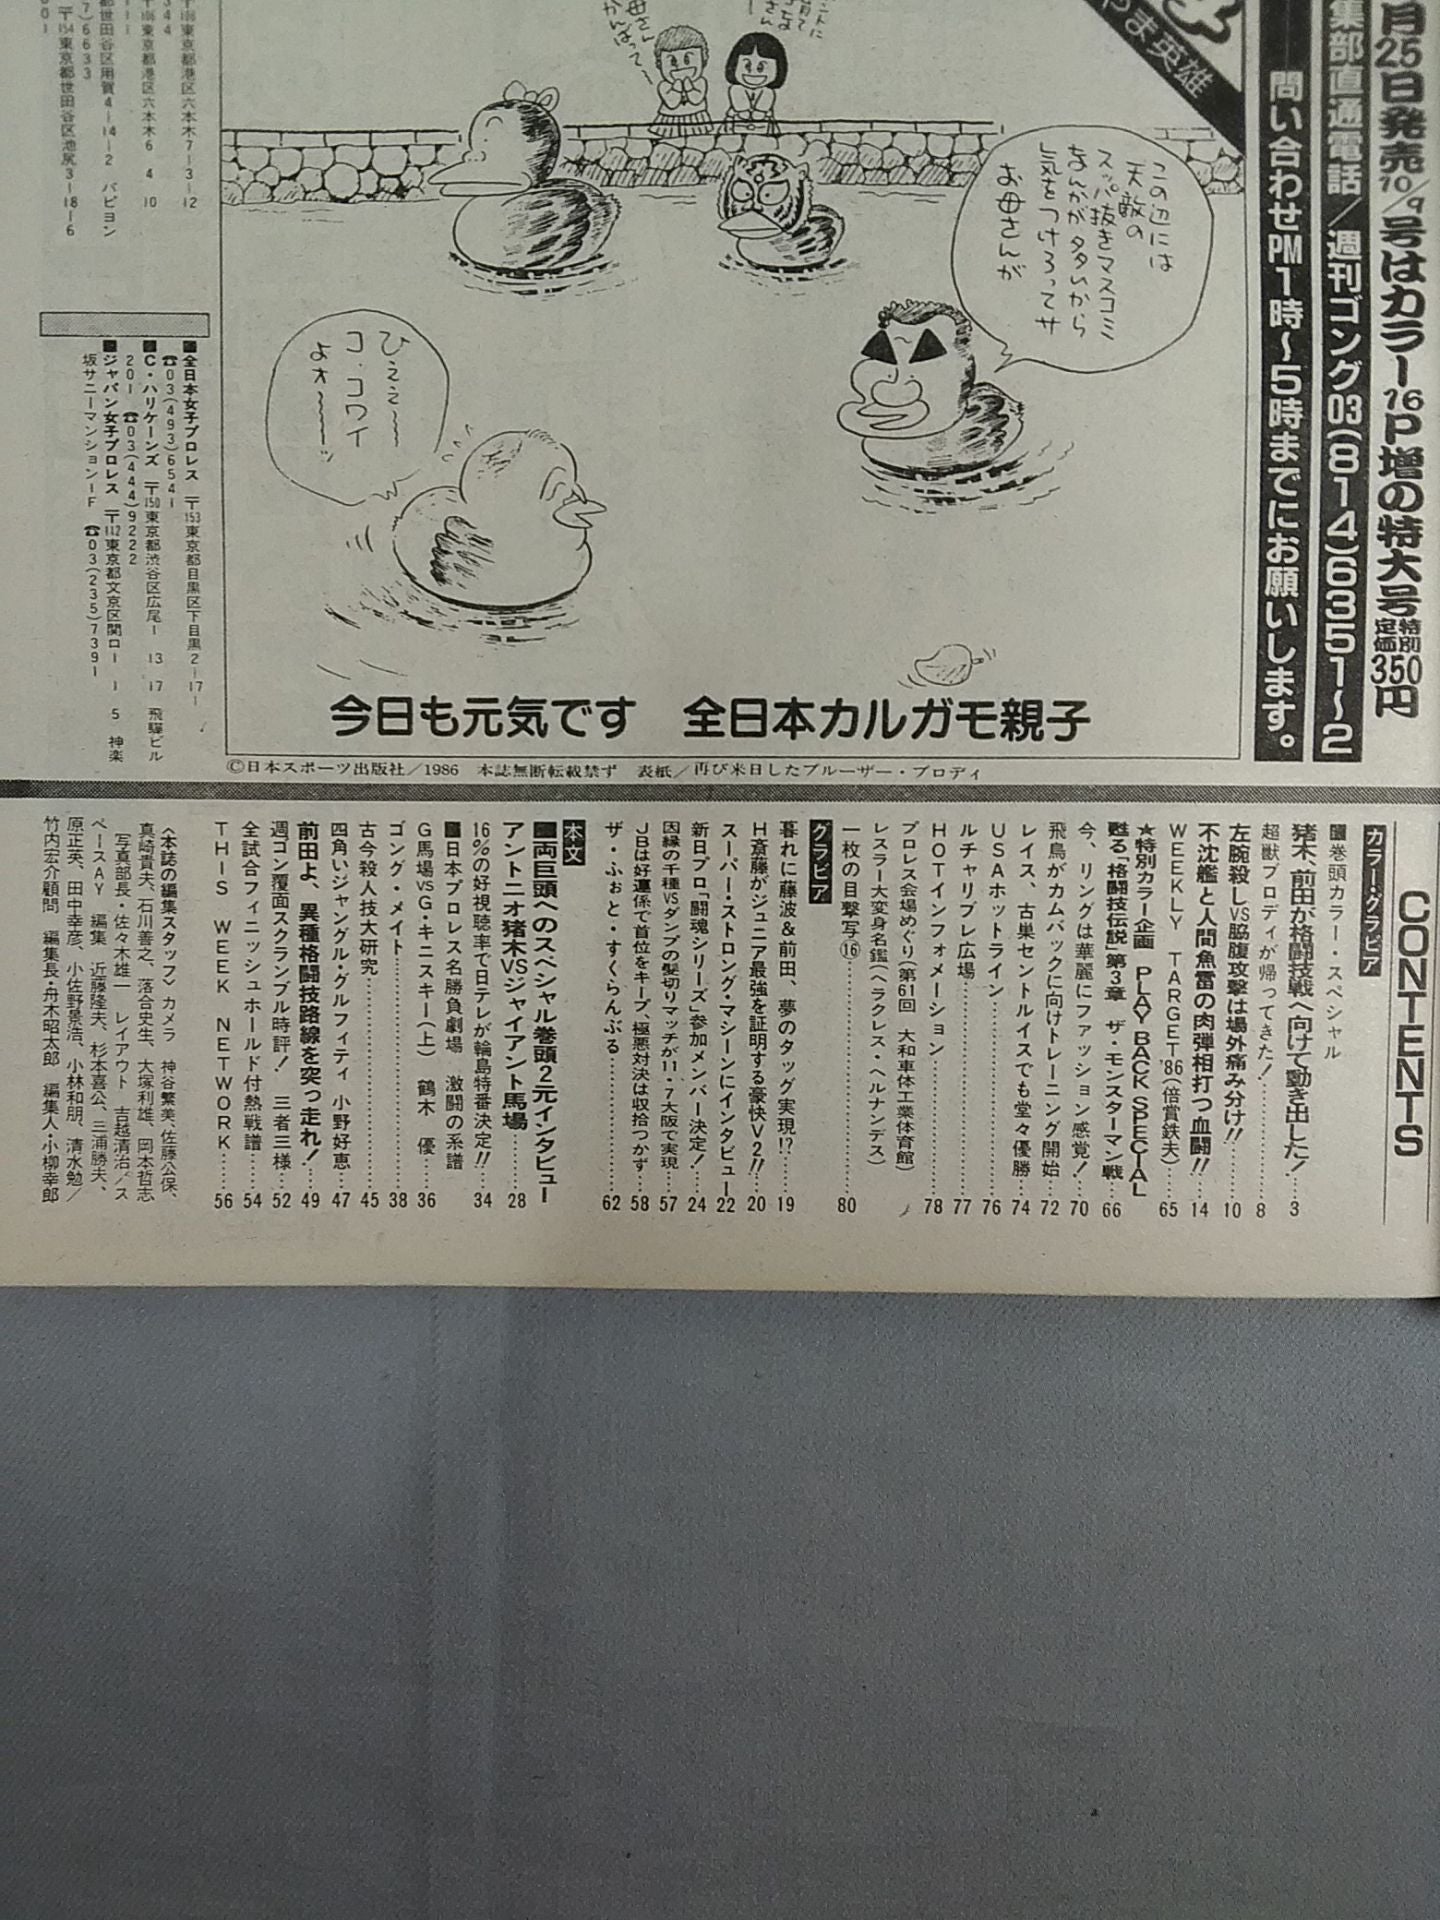 月25日発売10/9号はカラー16P増の特大号特別定価350円
集部直通電話/週刊ゴング03(814)6351〜2
問い合わせPM1時〜5時までにお願いします。
やま英雄
お母さん
がんばって〜
この辺には
天敵の
スッパ抜きマスコミ
なんかが多いから
気をつけろってサ
お母さんが
ひぇぇ〜
コ、コワイ
よォ〜ッ
今日も元気です　全日本カルガモ親子
©日本スポーツ出版社/1986　本誌無断転載禁ず　表紙/再び来日したブルーザー・ブロディ
〒106東京都港区六本木7-3-12
〒106東京都港区六本木6　4　10
都世田谷区用賀4-14-2　パピヨン
〒154東京都世田谷区池尻3-18-6
■全日本女子プロレス　〒153東京都目黒区下目黒2-17-
☎03(493)6541
■C・ハリケーンズ　〒150東京都渋谷区広尾1　13　17　飛驒ビル
201　☎03(444)9222
■ジャパン女子プロレス　〒112東京都文京区関口1　1　5　神楽
坂サニーマンション1F　☎03(235)7391
CONTENTS
カラー・グラビア
■巻頭カラー・スペシャル
猪木、前田が格闘技戦へ向けて動き出した!……3
超獣ブロディが帰ってきた!……8
左腕殺しVS脇腹攻撃は場外痛み分け!!……10
不沈艦と人間魚雷の肉弾相打つ血闘!!……14
WEEKLY TARGET'86(倍賞鉄夫)……65
★特別カラー企画　PLAY BACK SPECIAL
甦る「格闘技伝説」第3章　ザ・モンスターマン戦……66
今、リングは華麗にファッション感覚!……70
飛鳥がカムバックに向けトレーニング開始……72
レイス、古巣セントルイスでも堂々優勝……74
USAホットライン……76
ルチャリブレ広場……77
HOTインフォメーション……78
プロレス会場めぐり(第61回　大和車体工業体育館)
レスラー大変身名鑑(ヘラクレス・ヘルナンデス)
一枚の目撃写⑯……80
グラビア
暮れに藤波&前田、夢のタッグ実現!?……19
H斎藤がジュニア最強を証明する豪快V2!!……20
スーパー・ストロング・マシーンにインタビュー……22
新日プロ「闘魂シリーズ」参加メンバー決定!……24
因縁の千種VSダンプの髪切りマッチが11・7大阪で実現……57
JBは好運係で首位をキープ、極悪対決は収拾つかず……58
ザ・ふぉと・すくらんぶる……62
本文
■両巨頭へのスペシャル巻頭2元インタビュー
アントニオ猪木VSジャイアント馬場……28
16%の好視聴率で日テレが輪島特番決定!!……34
■日本プロレス名勝負劇場　激闘の系譜
G馬場VSG・キニスキー(上)　鶴木　優……36
ゴング・メイト……38
古今殺人技大研究……45
四角いジャングル・グルフィティ　小野好恵……47
前田よ、異種格闘技路線を突っ走れ!……49
週ゴン覆面スクランブル時評!　三者三様……52
全試合フィニッシュホールド付熱戦譜……54
THIS WEEK NETWORK……56
〈本誌の編集スタッフ〉カメラ　神谷繁美、佐藤公保、
真崎貴夫、石川善之、落合史生、大塚利雄、岡本哲志
写真部長・佐々木雄一　レイアウト　吉越清治/ス
ペースAY　編集　近藤隆夫、杉本喜公、三浦勝夫、
原正英、田中幸彦、小佐野景浩、小林和朋、清水勉/
竹内宏介顧問　編集長・舟木昭太郎　編集人・小柳幸郎